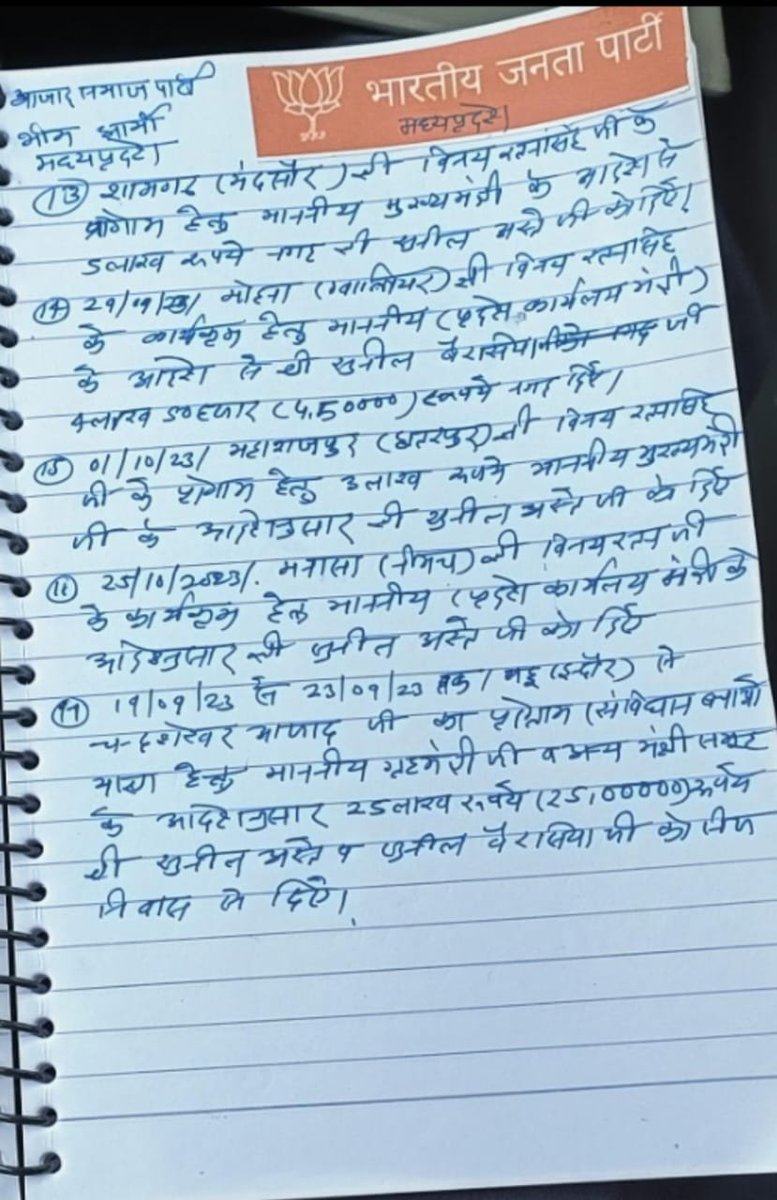 भारतीय जनता पार्टी
मध्यप्रदेश
आजाद समाज पार्टी
भीम आर्मी
मध्यप्रदेश
(13) शामगढ़ (मंदसौर) श्री विनय रत्नसिंह जी के
प्रोगाम हेतु माननीय मुख्यमंत्री के आदेश से
5 लाख रूपये नगद श्री सुनील अस्ते जी को दिऐ।
(14) 29/09/23/ मोहना (ग्वालियर) श्री विनय रत्नसिंह
के कार्यक्रम हेतु माननीय (प्रदेश कार्यलय मंत्री)
के आदेश से श्री सुनील बैरासिया जी
4 लाख 50 हजार (4,50000) रूपये नगद दिऐ।
(15) 01/10/23/ महाराजपुर (छतरपुर) श्री विनय रत्नसिंह
जी के प्रोगाम हेतु 3 लाख रूपये माननीय मुख्यमंत्री
जी के आदेशनुसार श्री सुनील अस्ते जी को दिऐ
(16) 25/10/2023/. मनासा (नीमच) श्री विनय रत्न जी
के कार्यक्रम हेतु माननीय (प्रदेश कार्यलय मंत्री के
आदेशनुसार श्री सुनील अस्ते जी को दिऐ
19/09/23 से 23/09/23 तक/ महू (इन्दौर) से
चन्द्रशेखर आजाद जी का प्रोग्राम (संविधान बचाओ
यात्रा हेतु माननीय गृहमंत्री जी व अन्य मंत्री
के आदेशनुसार 25 लाख रूपये (25,00000) रूपये
श्री सुनील अस्ते व सुनील बैरासिया जी को निज
निवास से दिऐ।